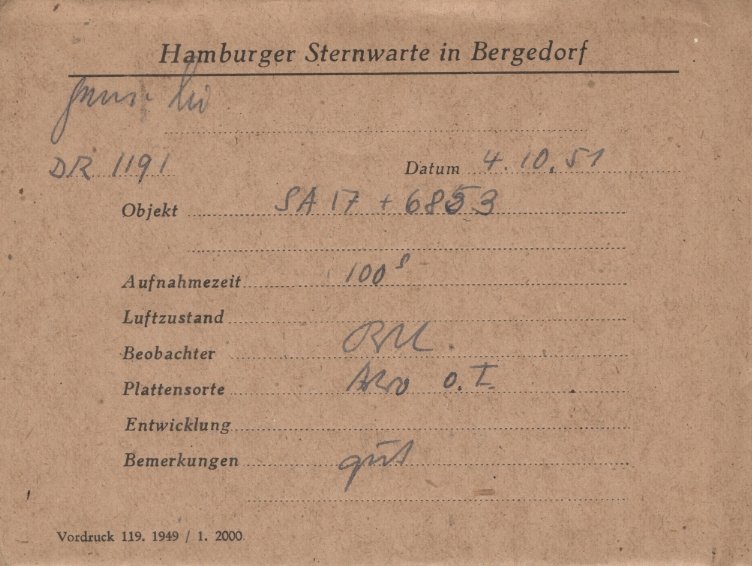 Hamburger Sternwarte in Bergedorf
DR 1191 Datum 4.10.51
Objekt SA 17 + 6853
Aufnahmezeit 100 s
Luftzustand
Beobachter
Plattensorte o. I
Entwicklung
Bemerkungen gut
Vordruck 119. 1949 / 1. 2000